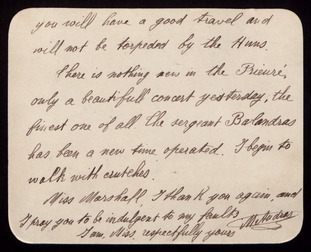 you will have a good travel and
will not be torpeded by the Huns.
There is nothing new in the Prieuré,
only a beautifull concert yesterday, the
finest one of all. The sergeant Balandras
has been a new time operated. I begin to
walk with crutches.
Miss Marshall, I thank you again, and
I pray you to be indulgent to my faults
I am, Miss, respectfully yours